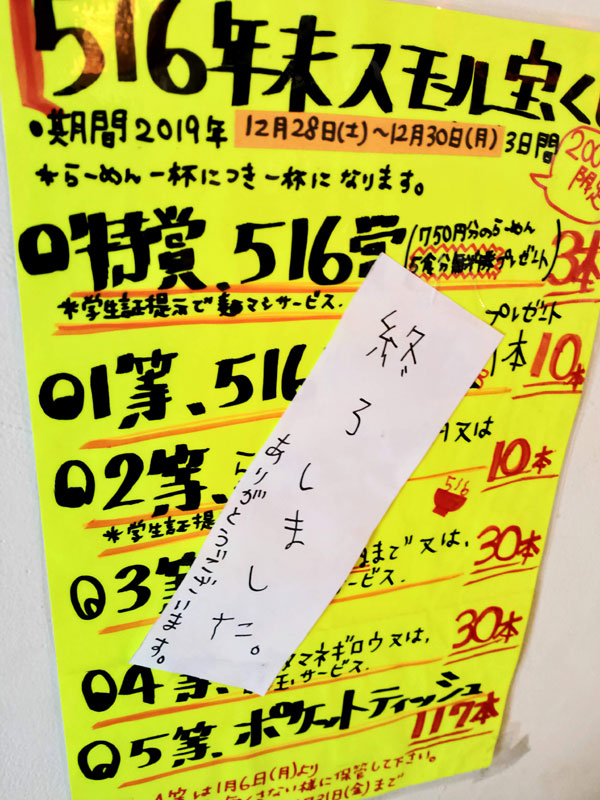 516年末スモール宝く
●期間2019年 12月28日(土)〜12月30日(月) 3日間
*らーめん一杯につき一杯になります。
200
限定
特賞、516賞(750円分のらーめん
5食分 プレゼント) 3本
*学生証提示で麺マシサービス.
プレゼント
1等、516 本 10本
2等、 又は 10本
*学生証提
516
3等 まで又は、 30本
サービス.
4等、 マネギロウ又は、 30本
玉、サービス.
5等、ポケットティッシュ
117本
4等は1月6日(月)より
さない様に保管して下さい。
21日(金)まで
終了しました。
ありがとうございます。